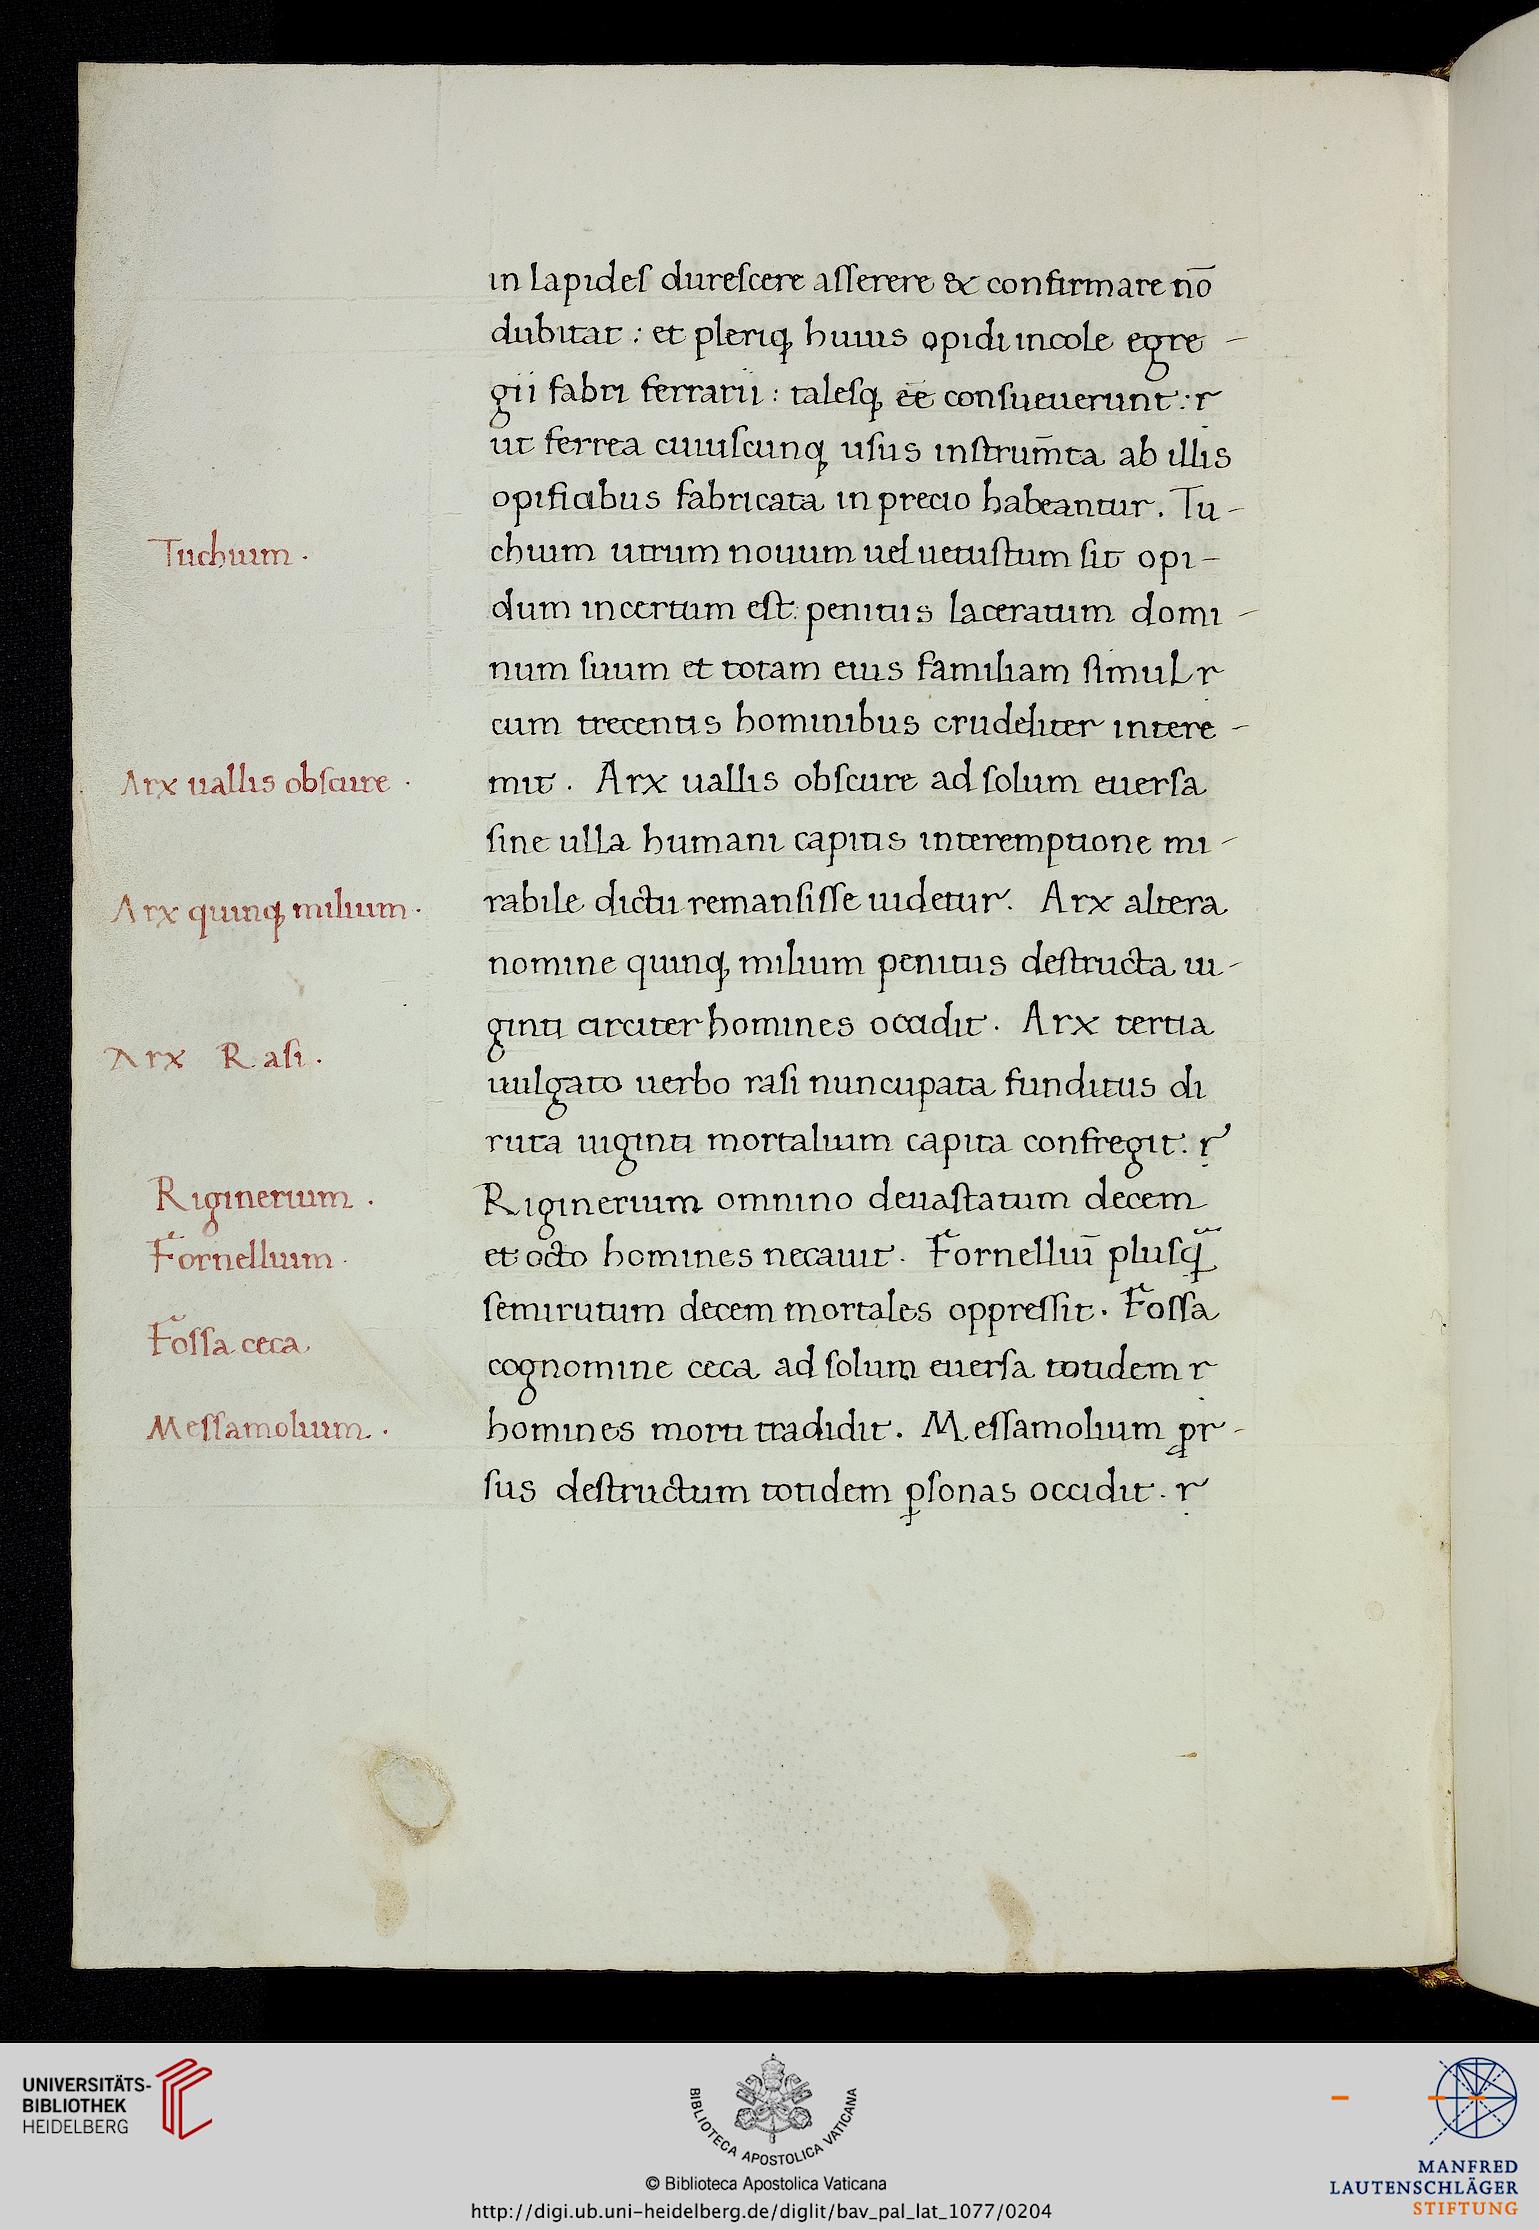 in lapideſ dureſcere aſſerere & confirmare nō
dubitat : et pleriq; huius opidi incole egre -
gii fabri ferrarii : taleſq; eē conſueuerunt :
ut ferrea cuiuſcunq; uſus inſtrum̄ta ab illis
opificibus fabricata in precio habeantur . Tu -
Tuchium .
chium utrum nouum uel uetuſtum ſit opi -
dum incertum eſt : penitus laceratum domi -
num ſuum et totam eius familiam ſimul
cum trecentis hominibus crudeliter intere -
Arx uallis obſcure .
mit . Arx uallis obſcure ad ſolum euerſa
ſine ulla humani capitis interemptione mi -
Arx quinq; milium .
rabile dictu remanſiſſe uidetur . Arx altera
nomine quinq; milium penitus deſtructa ui -
ginti circiter homines occidit . Arx tertia
Arx Raſi .
uulgato uerbo raſi nuncupata funditus di
ruta uiginti mortalium capita confregit .
Riginerium .
Riginerium omnino deuaſtatum decem
Fornellium .
et octo homines necauit . Fornelliū pluſq̄
ſemirutum decem mortales oppreſſit . Foſſa
Foſſa ceca
cognomine ceca ad ſolum euerſa totidem
Meſſamolium .
homines morti tradidit . Meſſamolium ꝓr -
ſus deſtructum totidem ꝑſonas occidit .
UNIVERSITÄTS-
BIBLIOTHEK
HEIDELBERG
BIBLIOTECA APOSTOLICA VATICANA
© Biblioteca Apostolica Vaticana
http://digi.ub.uni-heidelberg.de/diglit/bav_pal_lat_1077/0204
MANFRED
LAUTENSCHLÄGER
STIFTUNG